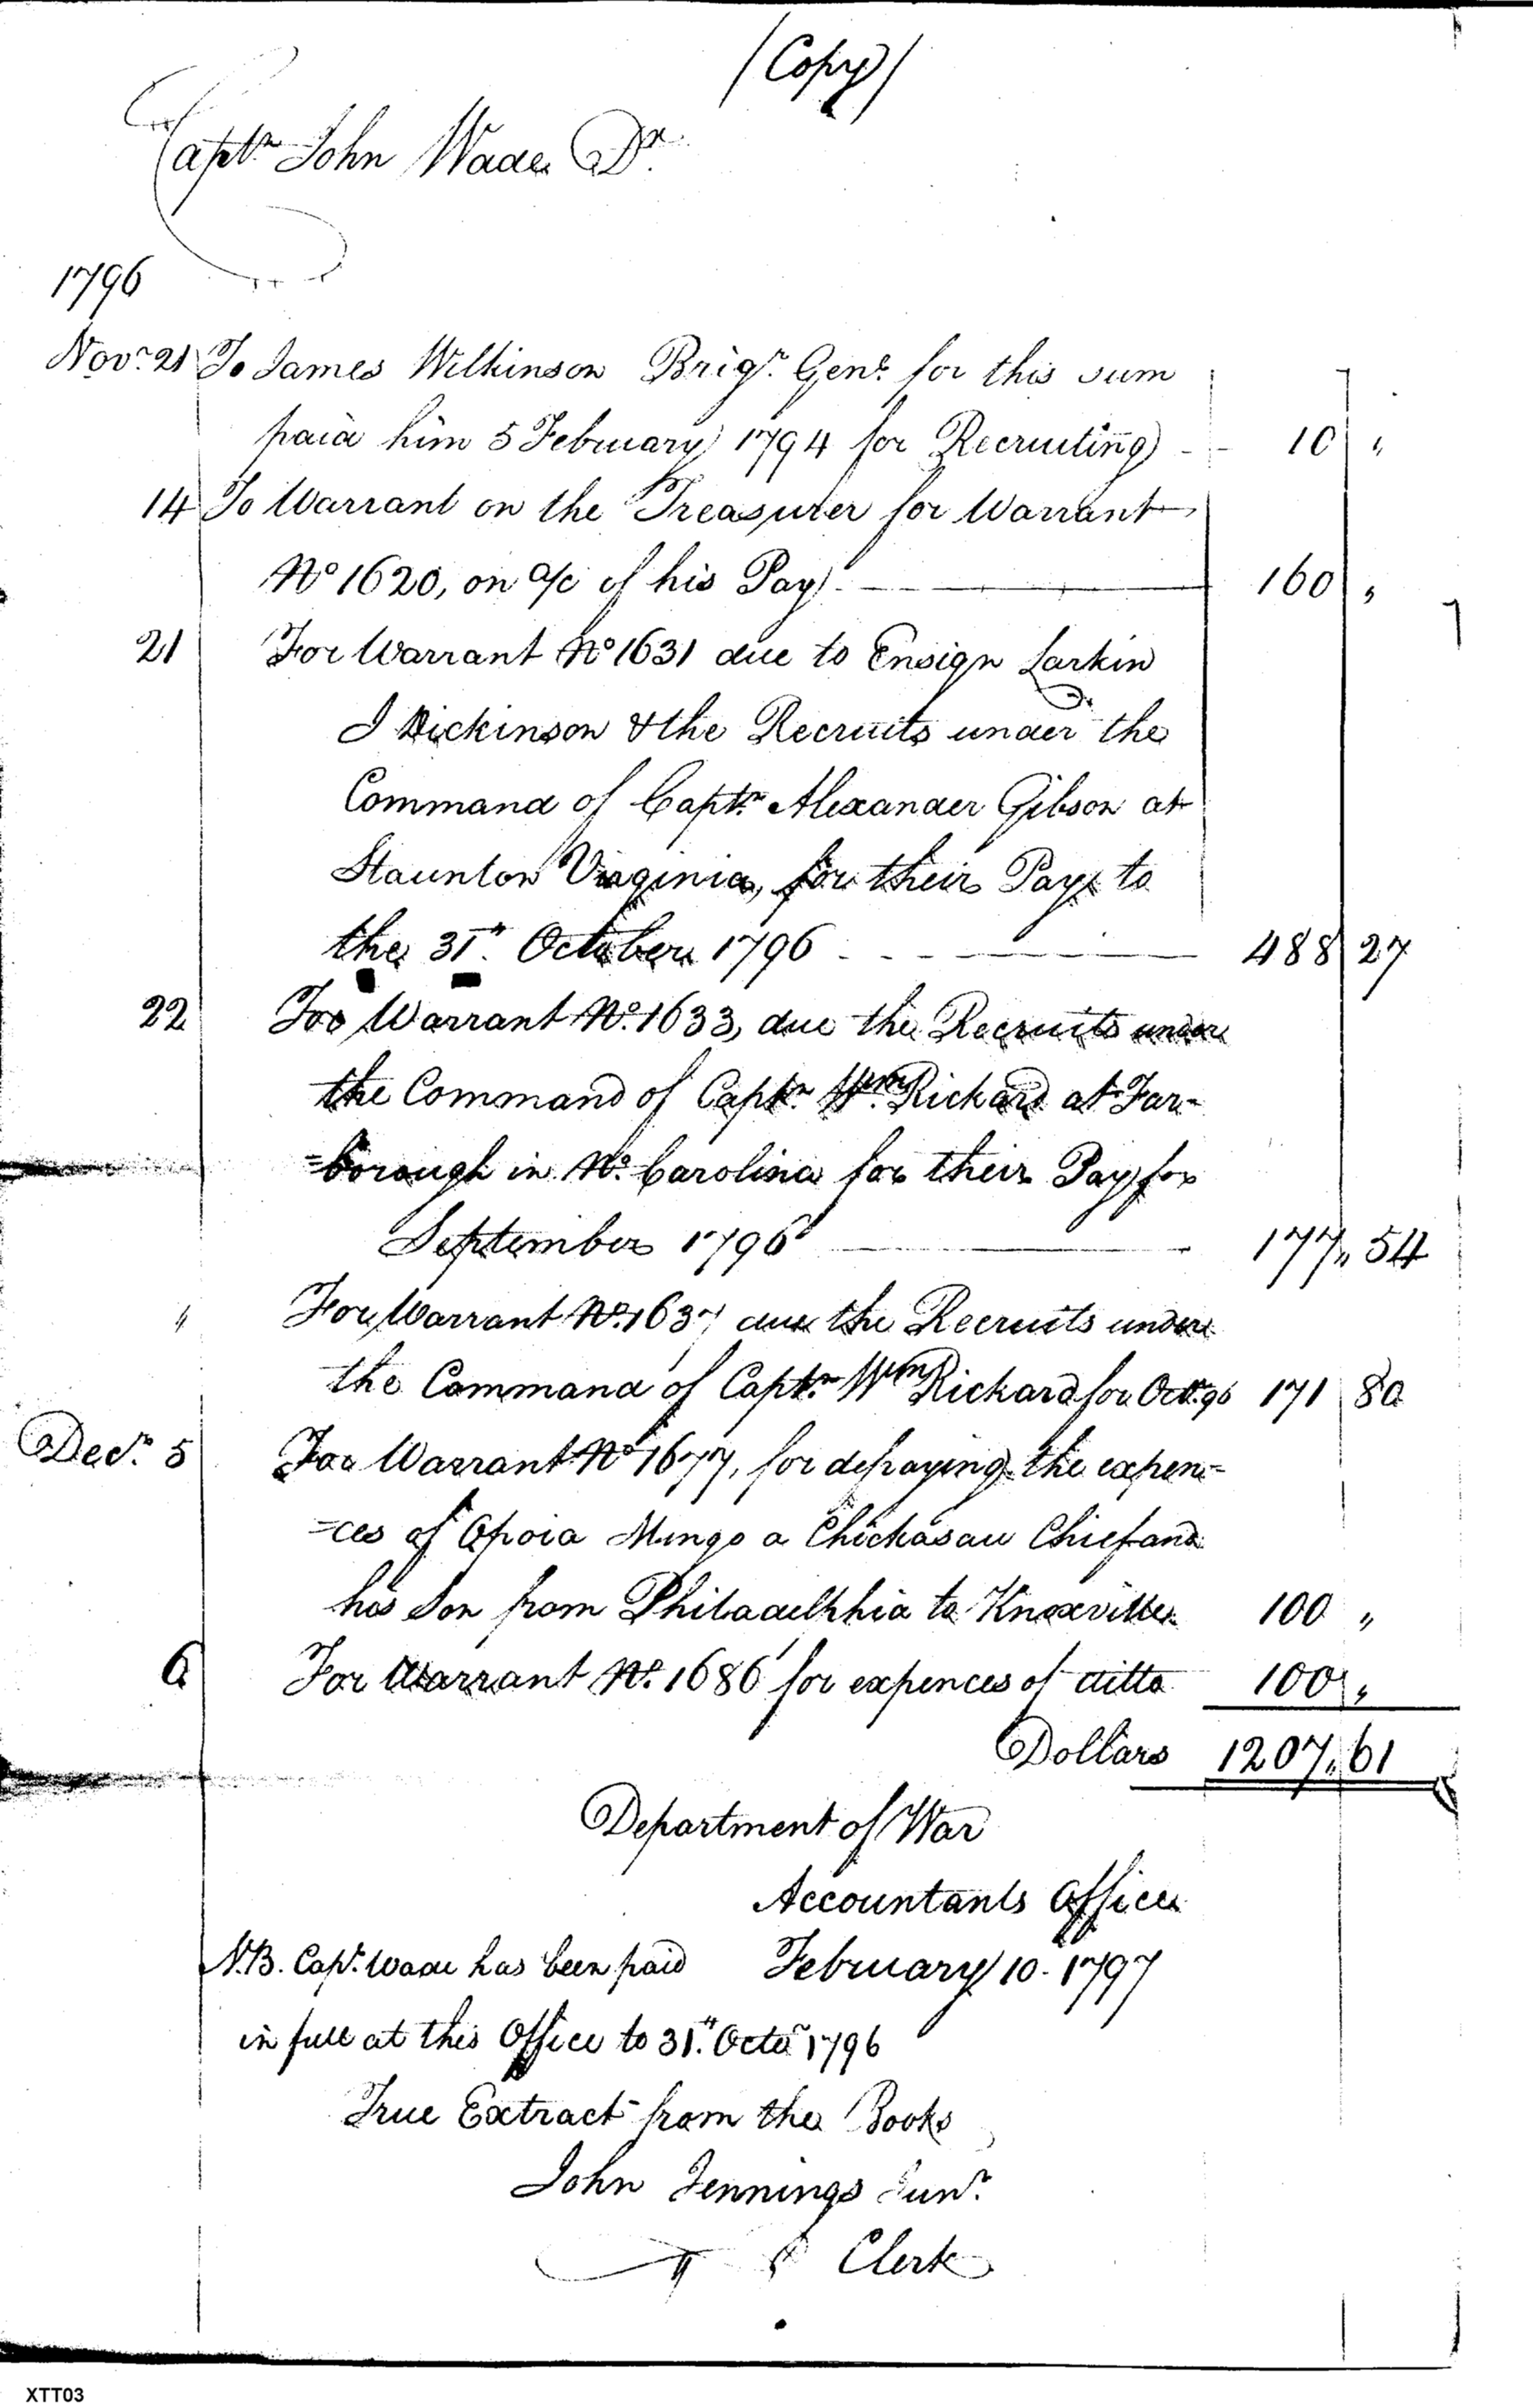 (Copy)
Captn John Wade Dr.
1796
Novr. 21 To James Wilkinson Brigr. Genl. for this sum
paid him 5 February 1794 for Recruiting -- 10 "
14 To Warrant on the Treasurer for Warrant
No 1620, on a/c of his Pay. 160 "
21 For Warrant No 1631 due to Ensign Larkin
Dickinson & the Recruits under the
Command of Captn. Alexander Gibson at
Staunton Virginia, for their Pay to
the 31st. October 1796 488 27
22 For Warrant No. 1633, due the Recruits under
the Command of Captn. Wm. Rickard at Tar-
=borough in No. Carolina for their Pay for
September 1796 177 " 54
" For Warrant No. 1637 due the Recruits under
the Command of Captn. Wm Rickard for Oct. 96 171 80
Decr. 5 For Warrant No 1677, for defraying the expen=
=ces of Opoia Mingo a Chickasaw Chief and
his Son from Philadelphia to Knoxville 100 "
6 For Warrant No. 1686 for expences of ditto 100 "
Dollars 1207 " 61
Department of War
Accountants Office
N.B. Capt. Wade has been paid February 10. 1797
in full at this Office to 31st. Octo 1796
True Extract from the Books
John Jennings Junr.
Clerk
XTT03